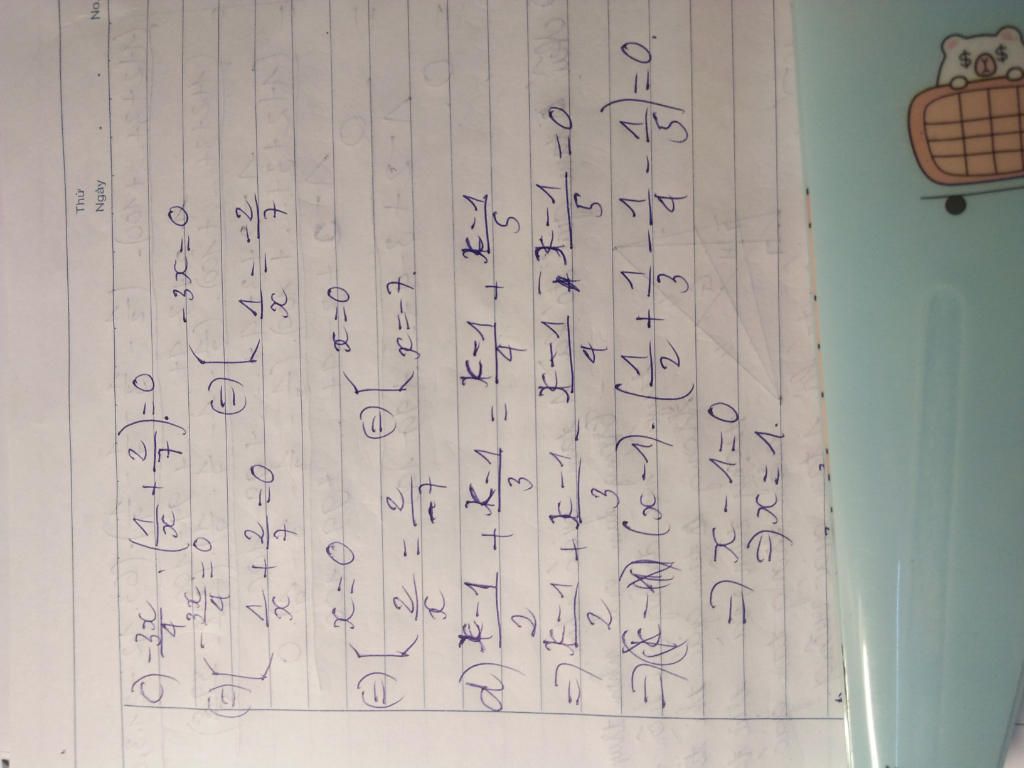 No.
Thứ
Ngày
c) -3x/4 . (1/x + 2/7) = 0
(=) [ -3x/4 = 0 (=) [ -3x = 0
1/x + 2/7 = 0 1/x = -2/7
(=) [ x = 0 (=) [ x = 0
2/x = 2/-7 x = -7.
d) x-1/2 + x-1/3 = x-1/4 + x-1/5
=) x-1/2 + x-1/3 - x-1/4 - x-1/5 = 0
=) (x-1) . (1/2 + 1/3 - 1/4 - 1/5) = 0.
=) x - 1 = 0
=) x = 1.
$ $